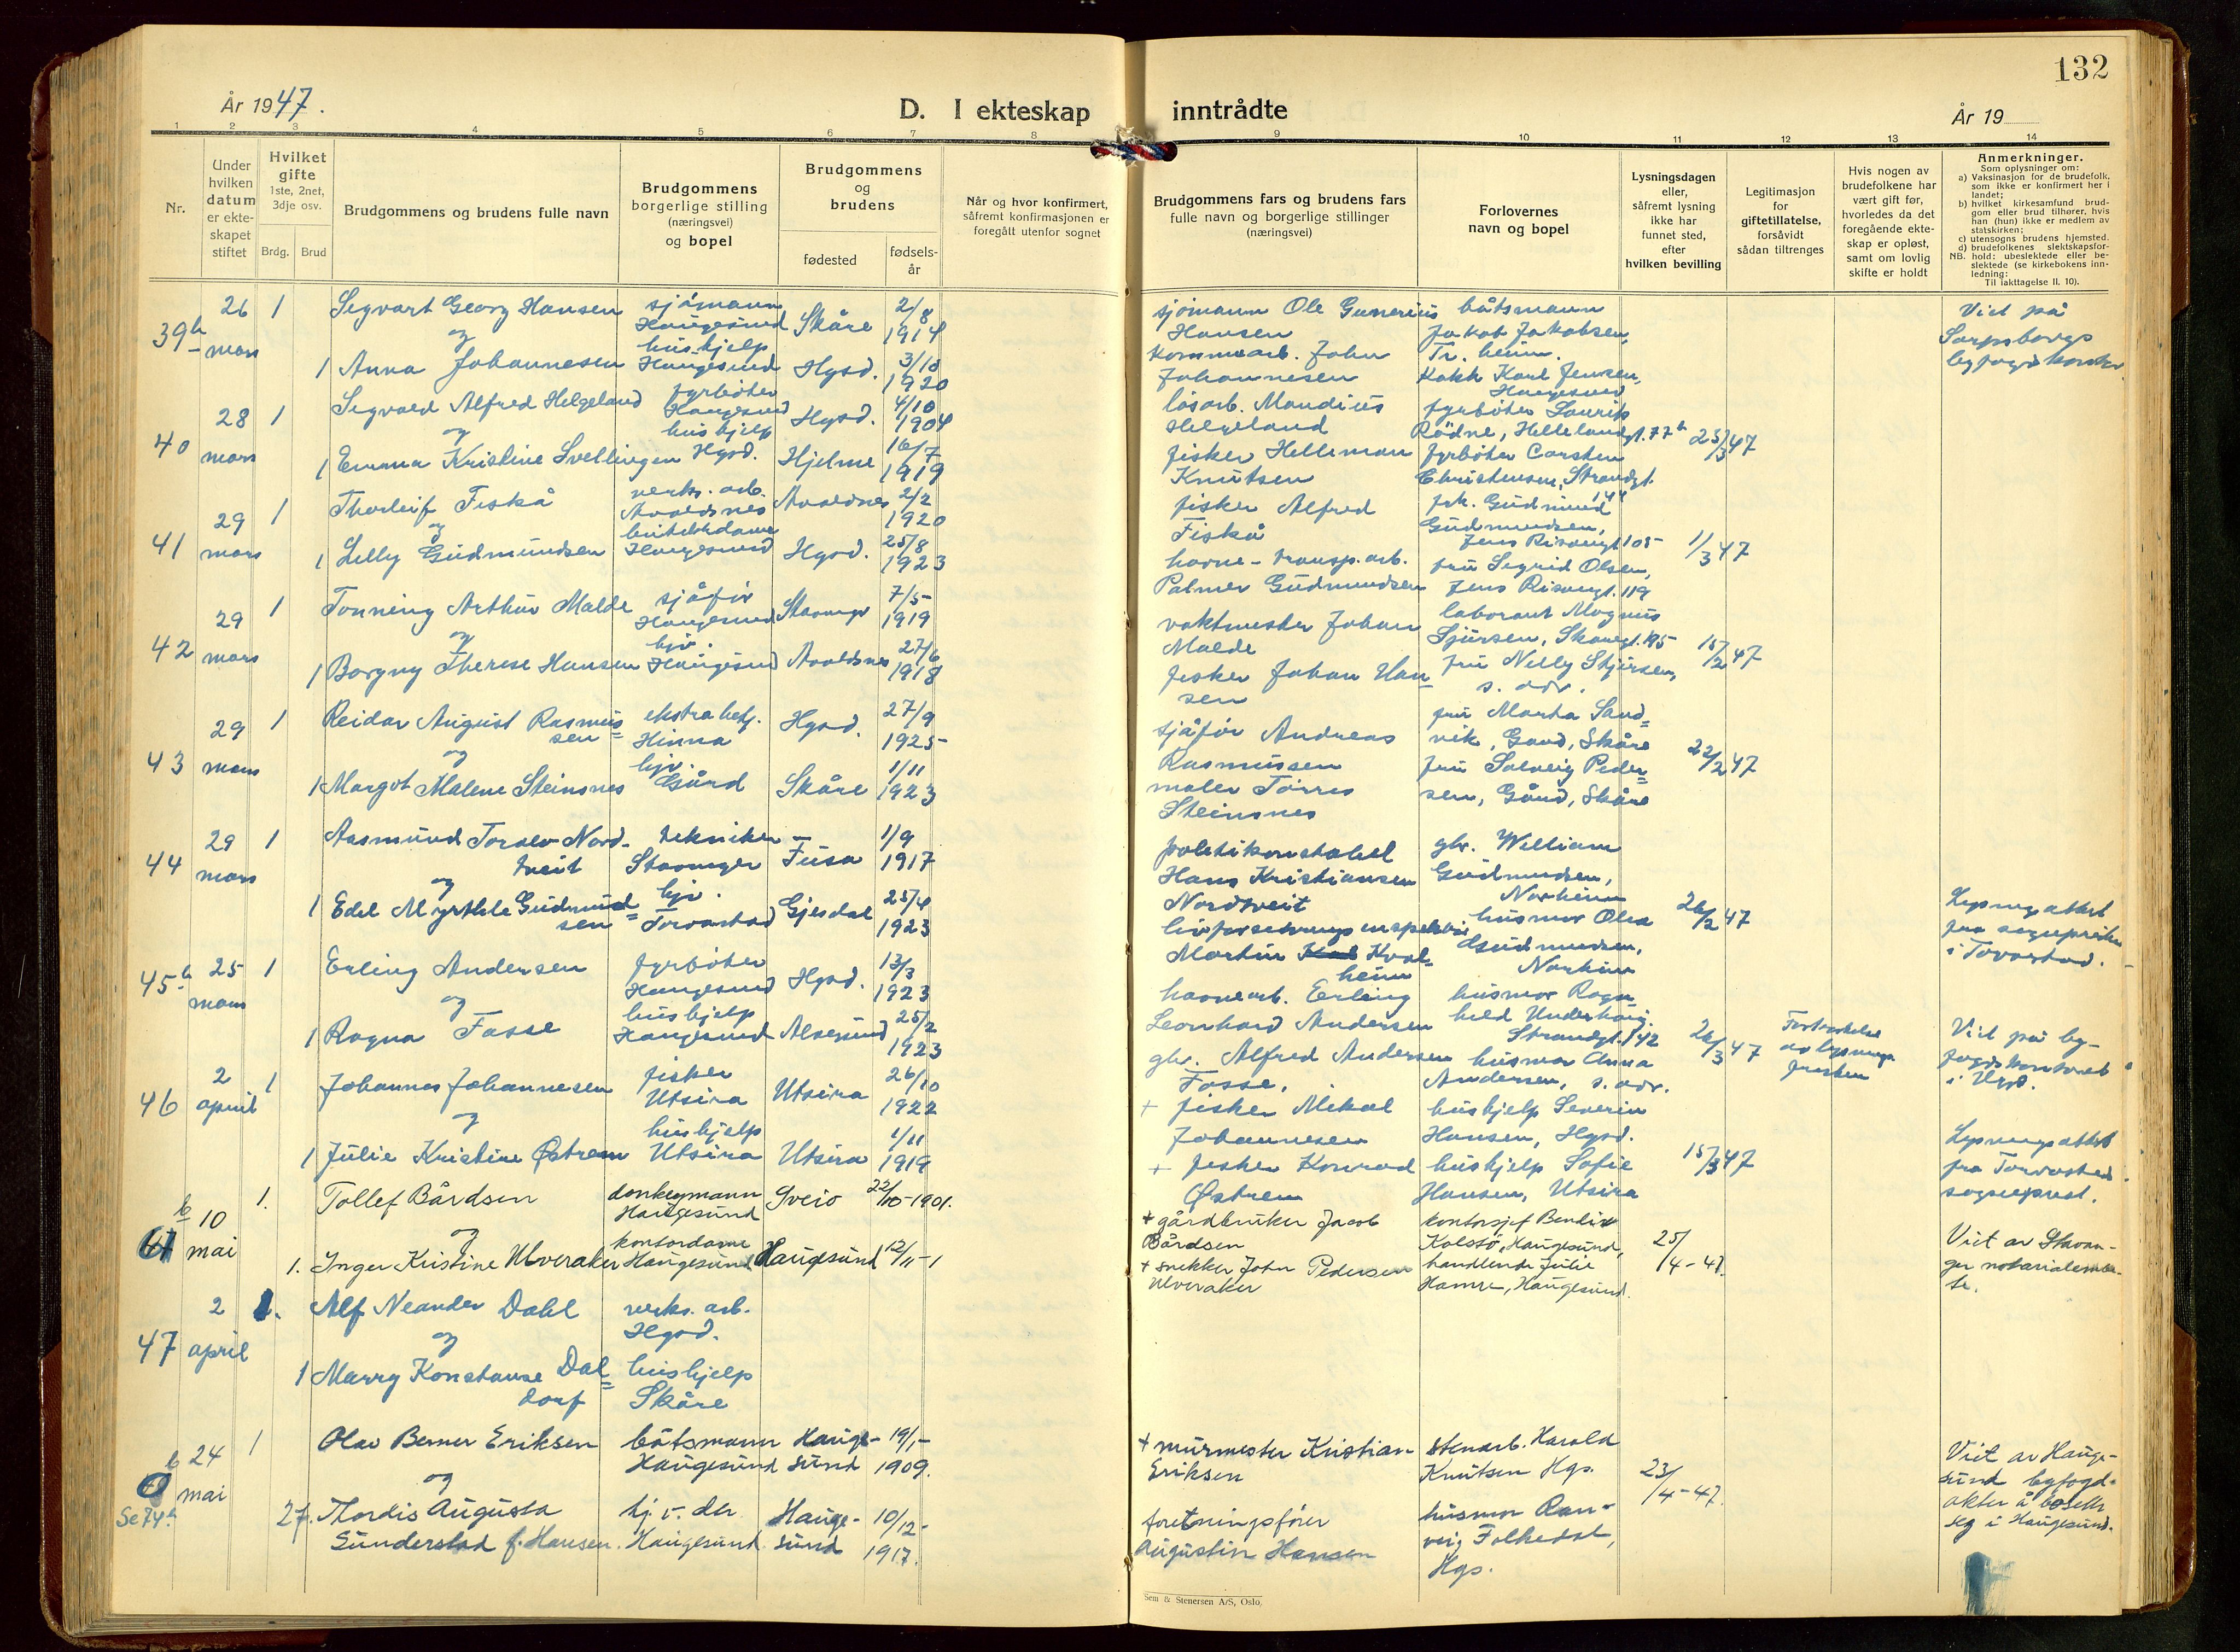 132
År 1947.
D. I ekteskap inntrådte
År 19
1 2 3 4 5 6 7 8 9 10 11 12 13 14
Nr.
Under hvilken datum er ekte-skapet stiftet
Hvilket gifte 1ste, 2net, 3dje osv.
Brdg. Brud
Brudgommens og brudens fulle navn
Brudgommens borgerlige stilling (næringsvei) og bopel
Brudgommens og brudens
fødested
fødsels-år
Når og hvor konfirmert, såfremt konfirmasjonen er foregått utenfor sognet
Brudgommens fars og brudens fars fulle navn og borgerlige stillinger (næringsvei)
Forlovernes navn og bopel
Lysningsdagen eller, såfremt lysning ikke har funnet sted, efter hvilken bevilling
Legitimasjon for giftetillatelse, forsåvidt sådan tiltrenges
Hvis nogen av brudefolkene har vært gift før, hvorledes da det foregående ekte-skap er opløst, samt om lovlig skifte er holdt
Anmerkninger.
Som oplysninger om:
a) Vaksinasjon for de brudefolk, som ikke er konfirmert her i landet;
b) hvilket kirkesamfund brud-gom eller brud tilhører, hvis han (hun) ikke er medlem av statskirken;
c) utensogns brudens hjemsted.
d) brudefolkenes slektskapsfor-
NB. hold: ubeslektede eller be-slektede (se kirkebokens inn-ledning:
Til iakttagelse II. 10).
39b 26 mars 1
Sigvart Georg Hansen
sjömann Haugesund
Skåre
2/8 1914
sjömann Ole Gunerius Hansen
båtsmann Jakob Jakobsen, Tr. heim.
Viet på Sarpsborgs byfogdkontor
og
1 Anna Johannesen
hushjelp Haugesund
Hgsd.
1920
kommunearb. John Johannesen
kokk Karl Jensen, Haugesund
40 28 mars 1
Sigvald Alfred Helgeland
fyrböter Haugesund
Hgsd.
4/10 1904
lösarb. Mandius Helgeland
fyrböter Laurits Rödne, Hellelandgt. 77b
23/3 47
og
1 Emma Kristine Svellingen
hushjelp Hgsd.
Hjelme
16/7 1919
fisker Helleman Knutsen
fyrböter Carsten Christensen, Strandgt.
41 29 mars 1
Thorleif Fiskå
verks. arb. Avaldsnes
Avaldnes
2/2 1920
fisker Alfred Fiskå
frk. Gudmund Gudmundsen, Jens Risøengt 105
1/3 47
og
1 Lilly Gudmundsen
butikkdame Haugesund
Hgsd.
25/8 1923
havne-transp. arb. Palmer Gudmundsen
fru Sigrid Olsen, Jens Risøengt. 119
42 29 mars 1
Tonning Arthur Malde
sjåför Haugesund
Stavanger
7/5- 1919
vaktmester Johan Malde
laborant Magnus Sjursen, Skåregt. 195
15/2 47
og
1 Borgny Therese Hansen
hjv. Haugesund
Avaldsnes
27/6 1918
fisker Johan Hansen
fru Nelly Sjursen, s. adr.
43 29 mars 1
Reidar August Rasmussen
ekstrabetj. Hinna
Hgsd.
27/9 1925-
sjåför Andreas Rasmussen
fru Marta Sandvik, Gard, Skåre
22/2 47
og
1 Margot Malene Steinsnes
hjv. Gård
Skåre
1/11 1923
maler Törres Steinsnes
fru Solveig Pedersen, Gård, Skåre
44 29 mars 1
Aasmund Toralv Nordtveit
tekniker Stavanger
Fusa
1/9 1917
politikonstabel Hans Kristiansen Nordtveit
gbr. William Gudmundsen, Norheim
26/2 47
Lysningsattest fra sogneprestn i Torvastad.
og
1 Edel Myrthle Gudmundsen
hjv. Torvastad
Gjesdal
25/4 1923
livforsikrings inspektör Martin Kvalheim
husmor Olea Gudmundsen, Norheim
45b 25 mars 1
Erling Andersen
fyrböter Haugesund
Hgsd.
13/3 1923
havnearb. Erling Leonhard Andersen
husmor Ragnhild Underhaug, Strandgt. 142
26/3 47
Forkortelse av lysnings fristen
Viet på byfogdkontoret i Hgsd.
og
1 Ragna Fosse
hushjelp Haugesund
Alversund
25/2 1923
gbr. Alfred Andersen Fosse,
husmor Anna Andersen, s. adr.
46 2 april 1
Johannes Johannesen
fisker Utsira
Utsira
26/10 1922
+ fisker Mikal Johannesen
hushjelp Severin Hansen, Hgsd.
15/3 47
Lysningsattest fra Torvastad sogneprest.
og
1 Julie Kristine Østrem
hushjelp Utsira
Utsira
1/11 1919
+ fisker Konrad Østrem
hushjelp Sofie Hansen, Utsira
b 10 mai 1.
Tollef Bårdsen
donkeymann Haugesund
Sveio
22/10-1901.
+ gårdbruker Jacob Bårdsen
kontorsjef Bendix Kolstø, Haugesund,
25/4-47.
Viet av Stavanger notarialembete.
og
1. Inger Kristine Ulveraker
kontordame Haugesund
Haugesund
12/11-1
+ snekker John Pedersen Ulveraker
handlende Julie Hamre, Haugesund.
47 2 april 1.
Alf Neander Dahl
verks. arb. Hgsd.
og
1 Marry Konstanse Daldorf
hushjelp Skåre
b 24 mai 1
Se 74b
Olav Berner Eriksen
båtsmann Haugesund
Haugesund
19/1- 1909.
+ murmester Kristian Eriksen
stenarb. Harald Knutsen Hgs.
23/4-47.
Viet av Haugesund byfogd. akter å bosette seg i Haugesund.
og
2f. Thordis Augusta Sunderstad f. Hansen.
hj. v. der Haugesund
Haugesund
10/12- 1917.
foretningsfører Augustin Hansen
husmor Ranveig Folkedal, Hgs.
Sem & Stenersen A/S, Oslo.